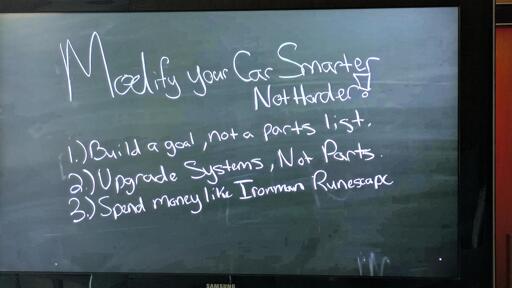 Modify your Car Smarter
Not Harder!
1.) Build a goal, not a parts list.
2.) Upgrade Systems, Not Parts.
3.) Spend money like Ironman Runescape
SAMSUNG